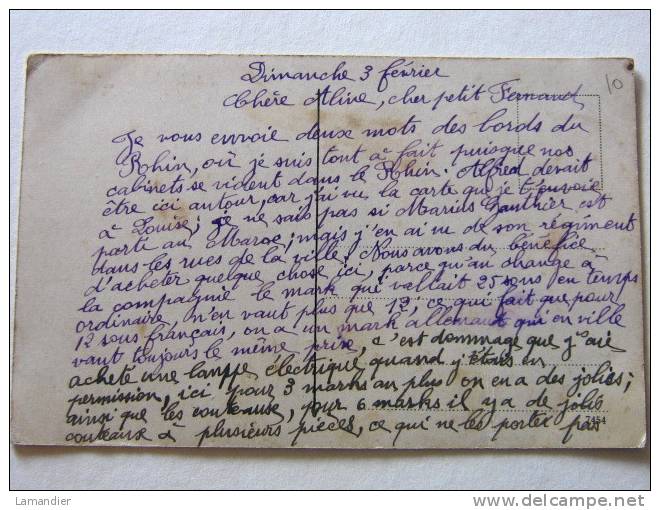 Dimanche 3 février
Chère Aline, cher petit Fernand,
10
Je vous envoie deux mots des bords du
Rhin, où je suis tout à fait puisque nos
cabinets se vident dans le Rhin. Alfred devait
être ici autour, car j'ai vu la carte que je t'envoie
à Louise; je ne sais pas si Marius Gauthier est
parti au Maroc; mais j'en ai vu de son régiment
dans les rues de la ville. Nous avons du bénéfice
d'acheter quelque chose ici, parce qu'au change à
la compagnie le mark qui vallait 25 sous en temps
ordinaire, n'en vaut plus que 12, ce qui fait que pour
12 sous français, on a un mark allemand qui en ville
vaut toujours le même prix, c'est dommage que j'aie
acheté une lampe électrique quand j'étais en
permission, ici pour 3 marks au plus on en a des jolies;
ainsi que les couteaux, pour 6 marks il y a de jolis
couteaux à plusieurs pièces, ce qui ne les porte pas
7454
Lamandier
www.delcampe.net